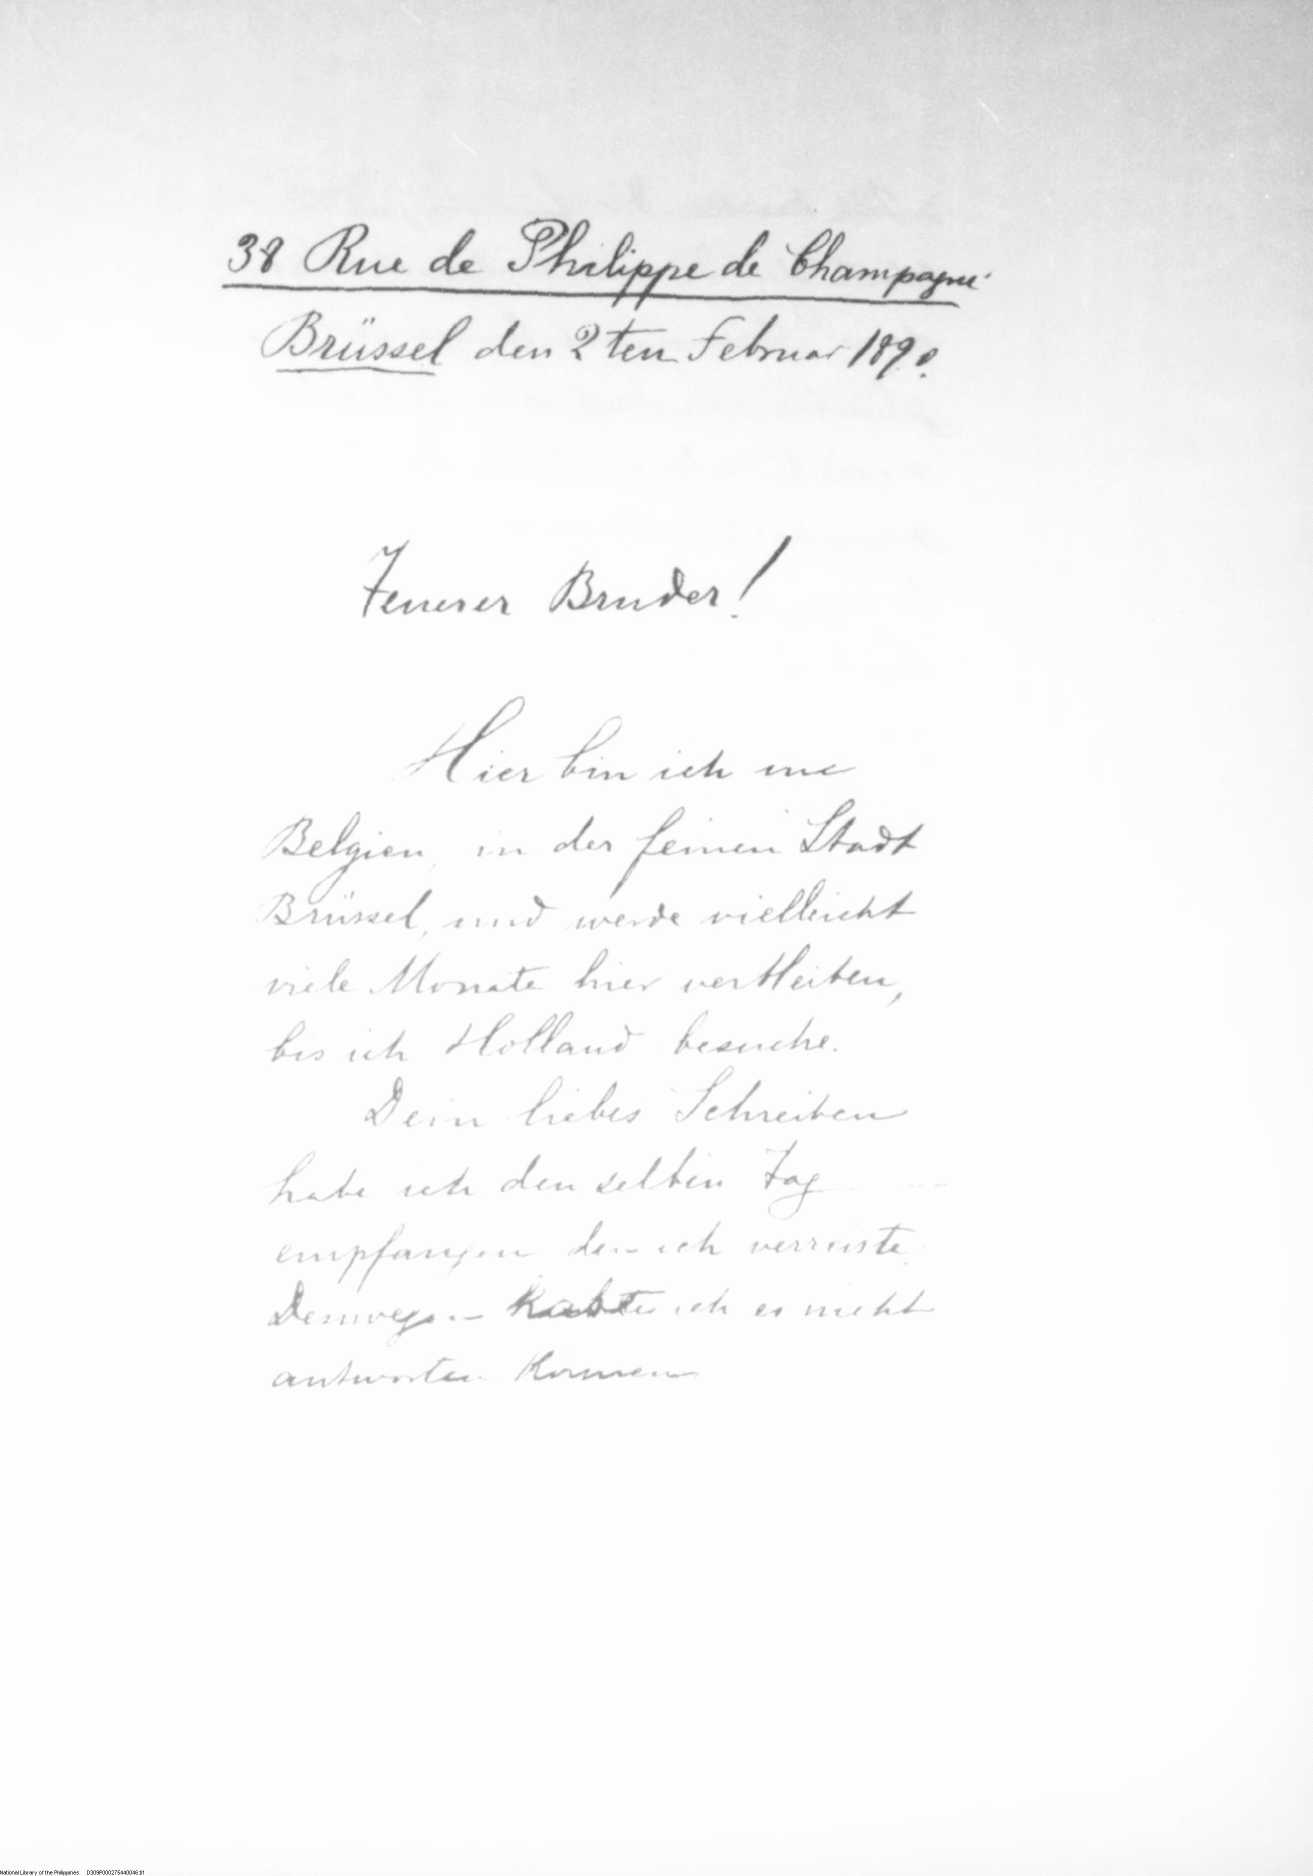 38 Rue de Philippe de Champagne
Brüssel den 2ten Februar 1890.
Teuerer Bruder!
Hier bin ich in
Belgien, in der feinen Stadt
Brüssel, und werde vielleicht
viele Monate hier verbleiben,
bis ich Holland besuche.
Dein liebes Schreiben
habe ich denselben Tag
empfangen den ich verreiste.
Deswegen habe ich es nicht
antworten können
National Library of the Philippines